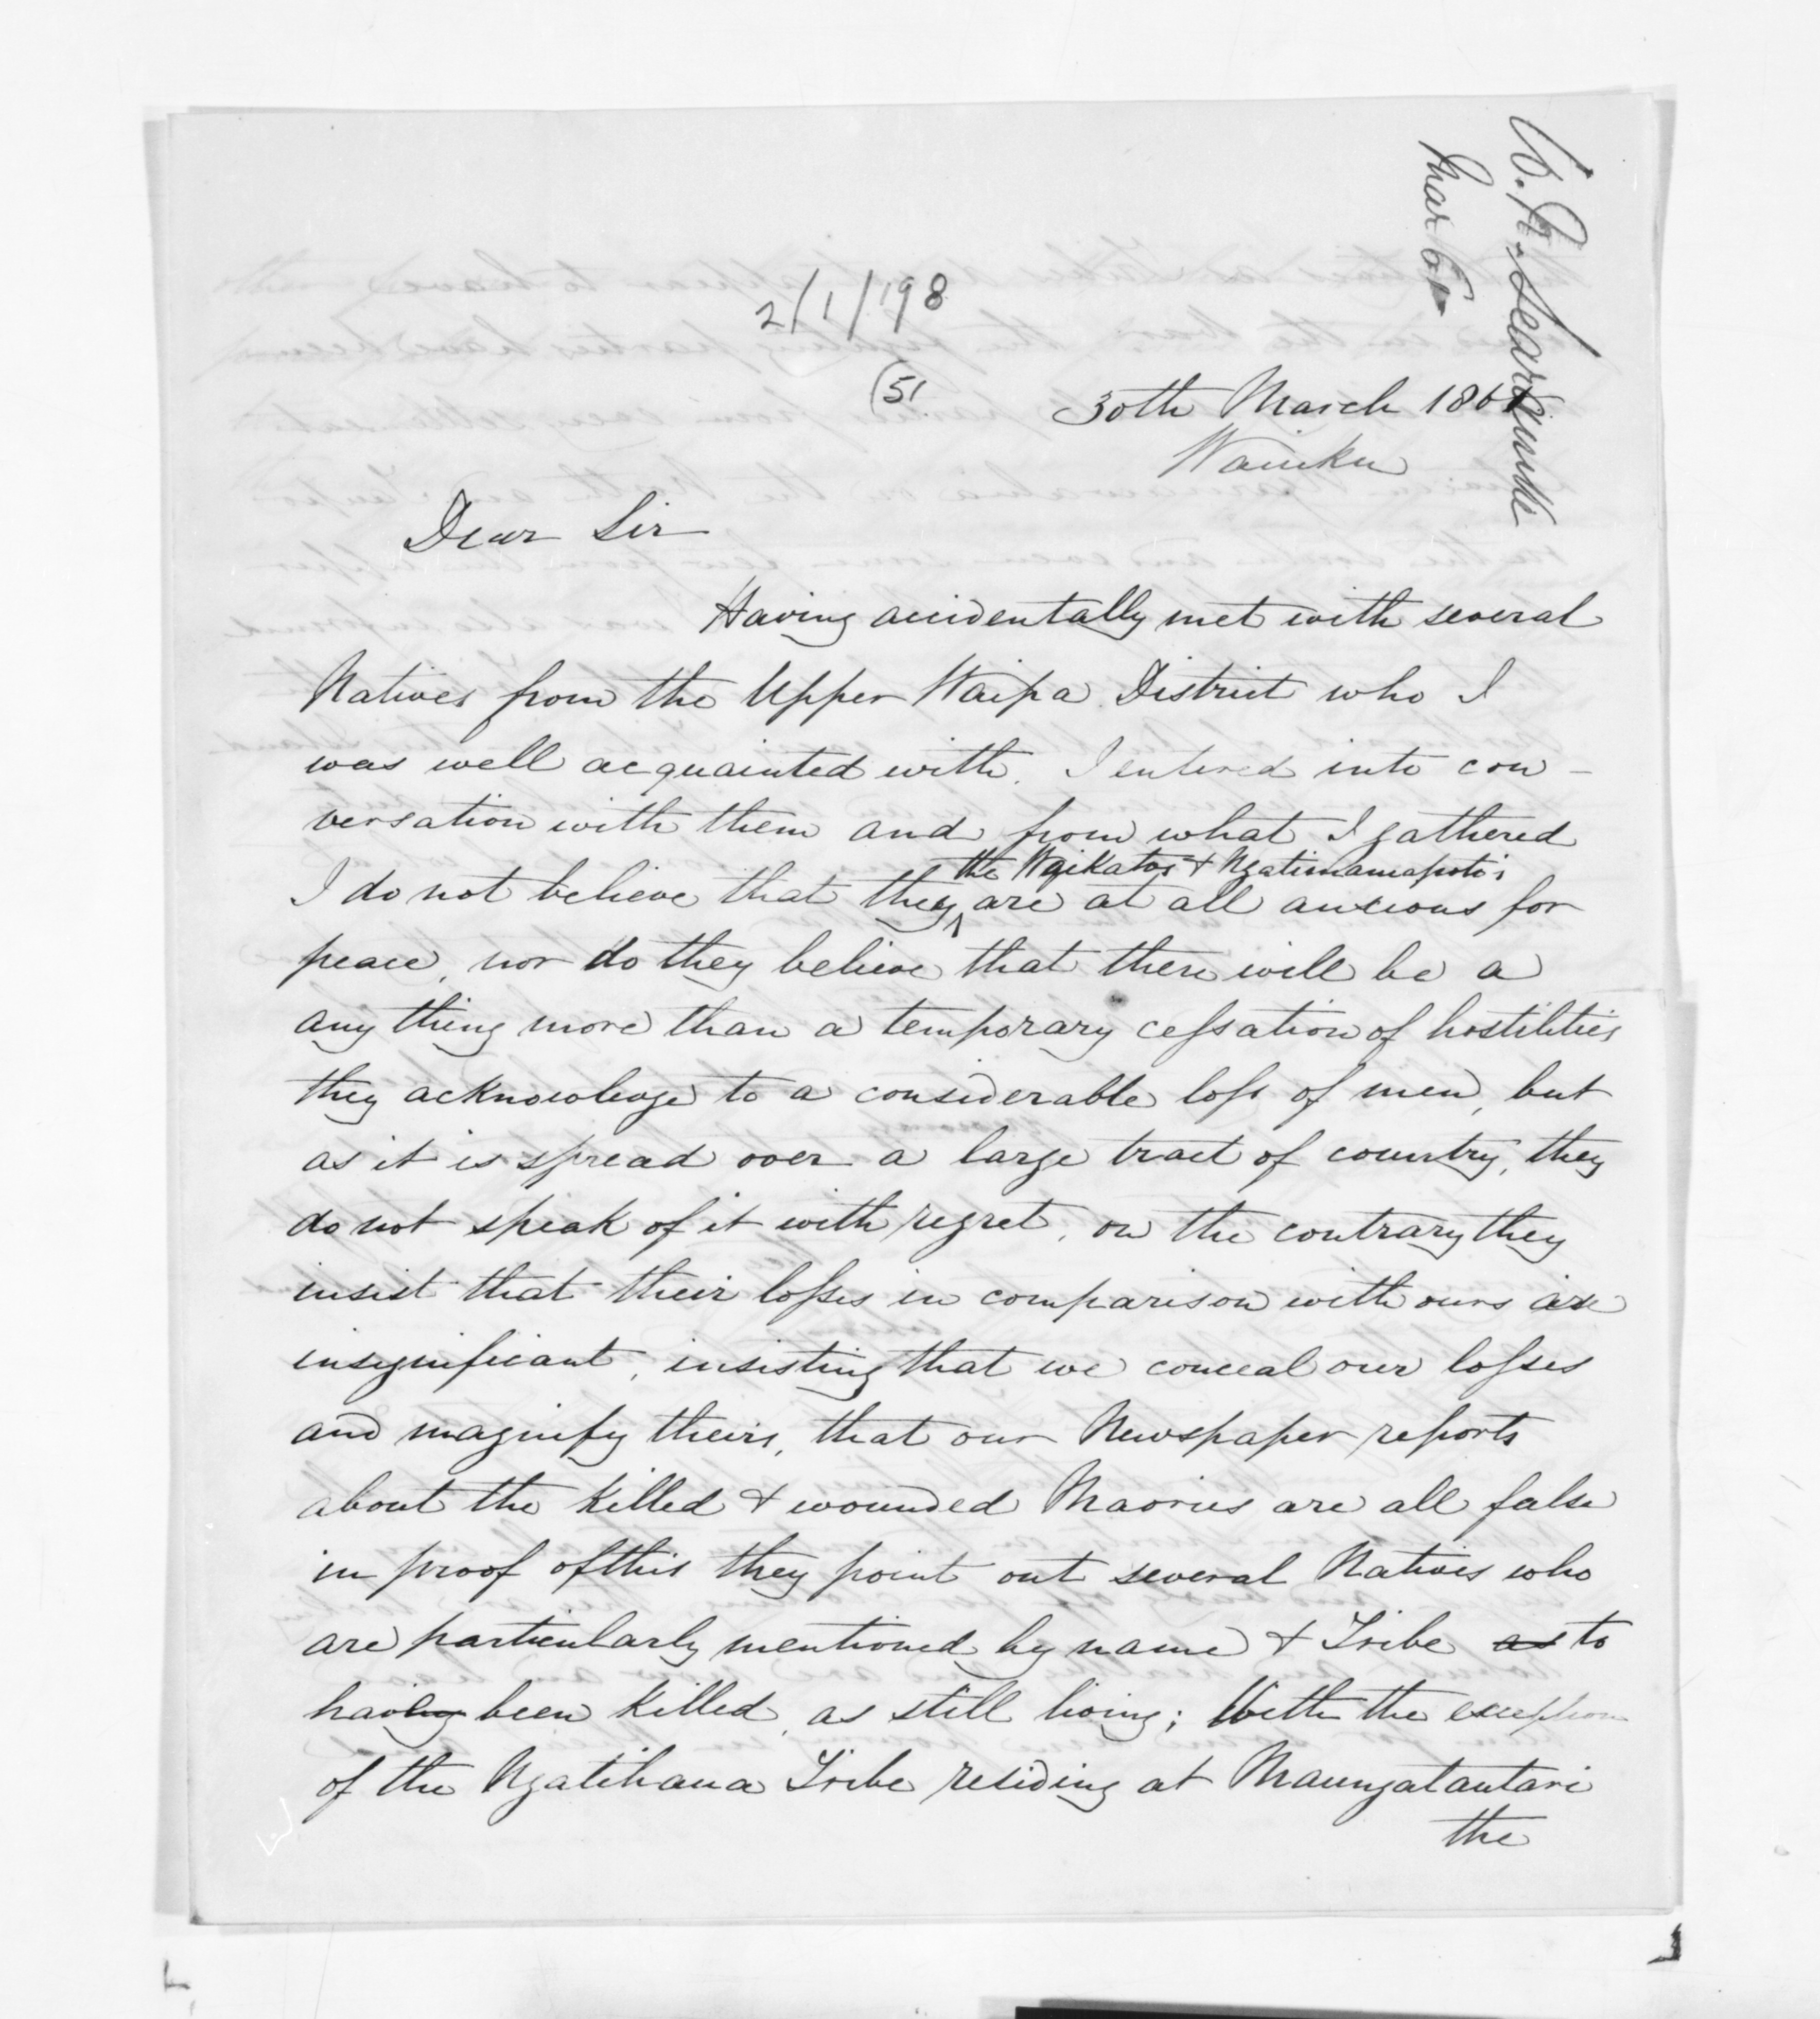 W. N. Searancke
Mar 61
2/1/198
(51
30th March 1861
Waiuku
Dear Sir
Having accidentally met with several
Natives from the Upper Waipa District who I
was well acquainted with. I entered into con-
versation with them and from what I gathered
the Waikatos & Ngatimaniapoto's
I do not believe that they are at all anxious for
peace, nor do they believe that there will be a
any thing more than a temporary cessation of hostilities
they acknowledge to a considerable loss of men, but
as it is spread over a large tract of country, they
do not speak of it with regret, on the contrary they
insist that their losses in comparison with ours are
insignificant, insisting that we conceal our losses
and magnify theirs, that our Newspaper reports
about the killed & wounded Maories are all false
in proof of this they point out several Natives who
are particularly mentioned by name & Tribe as to
having been killed, as still living; With the exception
of the Ngatihaua Tribe residing at Maungatautari
the